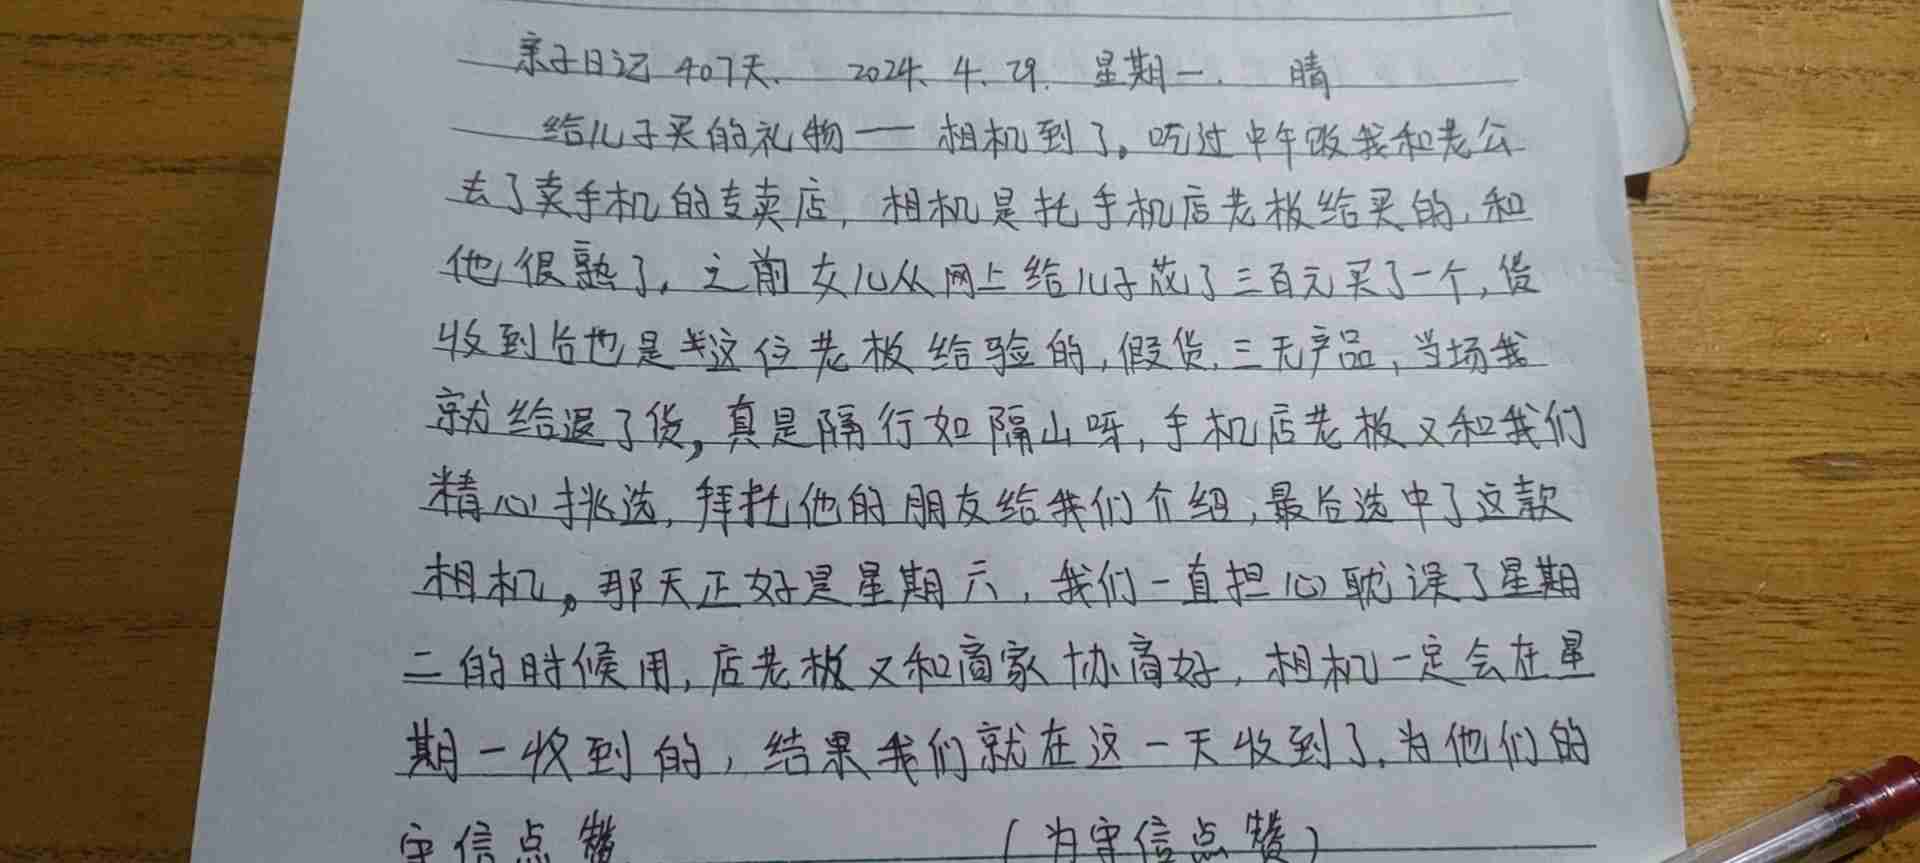 亲子日记407天. 2024.4.29. 星期一. 晴
给儿子买的礼物一相机到了。吃过中午饭我和老公
去了卖手机的专卖店，相机是托手机店老板给买的，和
他很熟了，之前女儿从网上给儿子花了三百元买了一个，货
收到后也是这位老板给验的，假货，三无产品，当场我
就给退了货，真是隔行如隔山呀，手机店老板又和我们
精心挑选，拜托他的朋友给我们介绍，最后选中了这款
相机。那天正好是星期六，我们一直担心耽误了星期
二的时候用，店老板又和商家协商好，相机一定会在星
期一收到的，结果我们就在这一天收到了，为他们的
守信点赞 (为守信点赞)